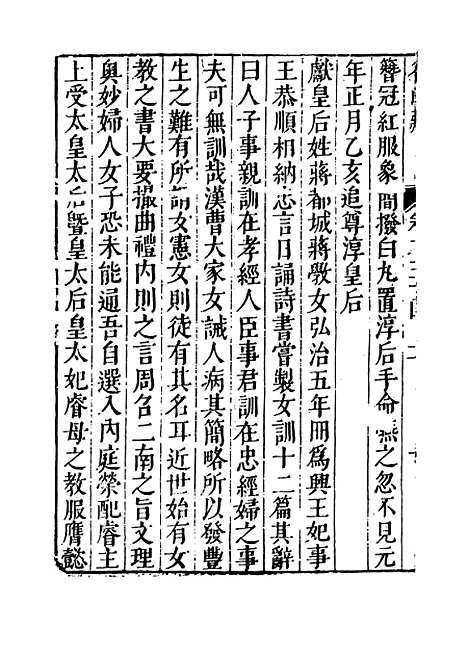 簪冠紅服象簡撥白丸置淳后手命嚥之忽不見元
年正月乙亥追尊淳皇后
獻皇后姓蔣都城蔣斆女弘治五年冊爲興王妃事
王恭順相納忠言日誦詩書嘗製女訓十二篇其辭
曰人子事親訓在孝經人臣事君訓在忠經婦之事
夫可無訓哉漢曹大家女誡人病其簡略所以發豐
生之難有所謂女憲女則徒有其名耳近世始有女
教之書大要撮曲禮内則之言周召二南之旨文理
奥妙婦人女子恐未能通吾自選入内庭榮配睿主
上受太皇太后曁皇太后皇太妃睿母之教服膺懿